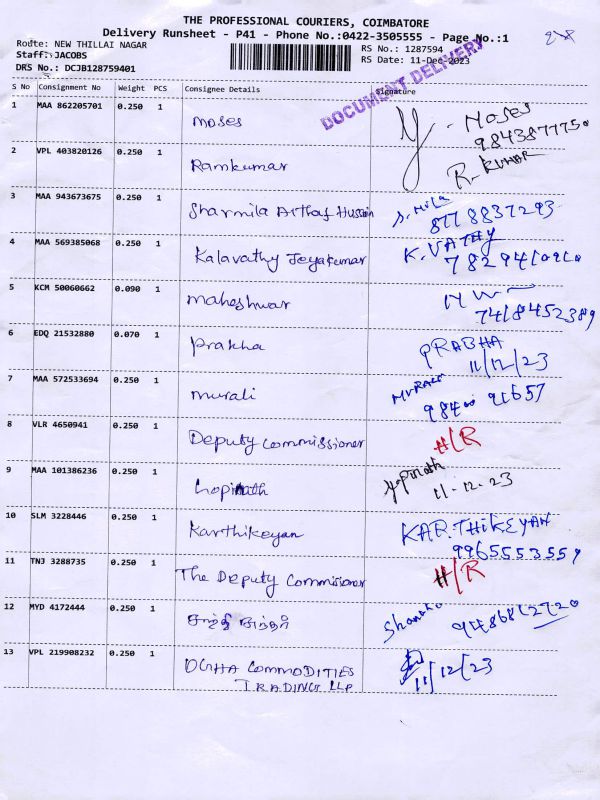 THE PROFESSIONAL COURIERS, COIMBATORE
Delivery Runsheet - P41 - Phone No.:0422-3505555 - Page No.:1
Route: NEW THILLAI NAGAR
RS No.: 1287594
Staff: JACOBS
RS Date: 11-Dec-2023
DRS No.: DCJB128759401
DOCUMENT DELIVERY
S No Consignment No Weight PCS Consignee Details Signature
1 MAA 862205701 0.250 1 Moses MOSES
9843877750
2 VPL 403820126 0.250 1 Ramkumar R. KUMAR
3 MAA 943673675 0.250 1 Sharmila Arthaf Hussain
8778837293
4 MAA 569385068 0.250 1 Kalavathy Jeyakumar K. VATHY
5 KCM 50060662 0.090 1 Maheshwar
7418452389
6 EDQ 21532880 0.070 1 Prakha PRABHA
11/12/23
7 MAA 572533694 0.250 1 Murali MURALI
8 VLR 4650941 0.250 1 Deputy Commissioner H/R
9 MAA 101386236 0.250 1 Gopinath Gopinath
11-12-23
10 SLM 3228446 0.250 1 Karthikeyan KARTHIKEYAN
9965553559
11 TNJ 3288735 0.250 1 The Deputy Commissioner H/R
12 MYD 4172444 0.250 1
13 VPL 219908232 0.250 1 OGHA COMMODITIES
TRADINGS LLP
11/12/23